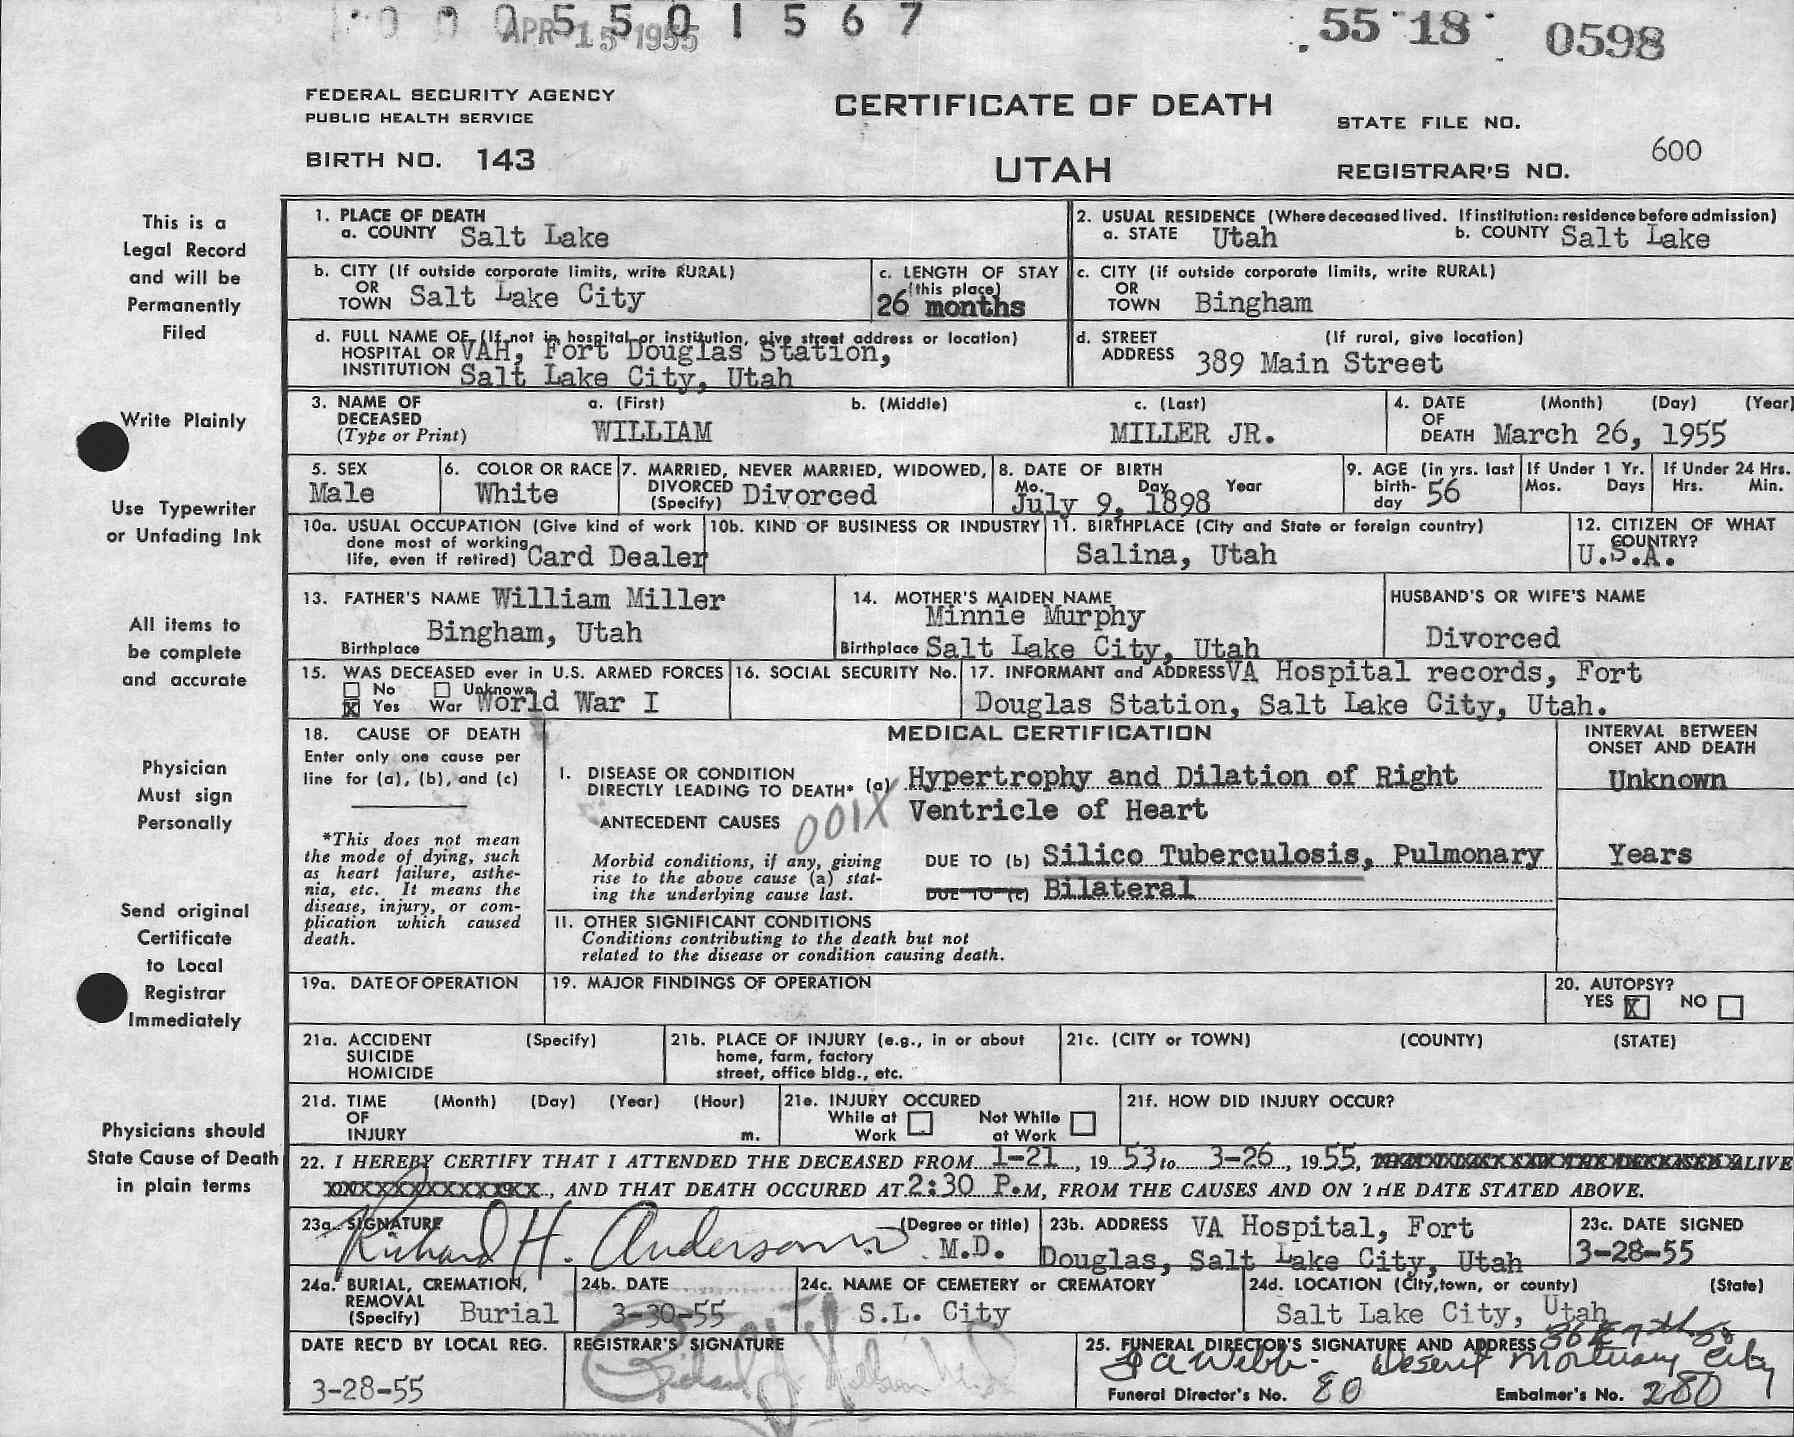 0 0 0 5 5 0 1 5 6 7
APR 15 1955
55 18 0598
FEDERAL SECURITY AGENCY
PUBLIC HEALTH SERVICE
BIRTH NO. 143
CERTIFICATE OF DEATH
UTAH
STATE FILE NO.
REGISTRAR'S NO. 600
This is a
Legal Record
and will be
Permanently
Filed
Write Plainly
Use Typewriter
or Unfading Ink
All items to
be complete
and accurate
Physician
Must sign
Personally
Send original
Certificate
to Local
Registrar
Immediately
Physicians should
State Cause of Death
in plain terms
1. PLACE OF DEATH
a. COUNTY Salt Lake
2. USUAL RESIDENCE (Where deceased lived. If institution: residence before admission)
a. STATE Utah b. COUNTY Salt Lake
b. CITY (If outside corporate limits, write RURAL)
OR
TOWN Salt Lake City
c. LENGTH OF STAY
(this place)
26 months
c. CITY (if outside corporate limits, write RURAL)
OR
TOWN Bingham
d. FULL NAME OF (If not in hospital or institution, give street address or location)
HOSPITAL OR VAH, Fort Douglas Station,
INSTITUTION Salt Lake City, Utah
d. STREET (If rural, give location)
ADDRESS 389 Main Street
3. NAME OF a. (First) b. (Middle) c. (Last)
DECEASED
(Type or Print) WILLIAM MILLER JR.
4. DATE (Month) (Day) (Year)
OF
DEATH March 26, 1955
5. SEX
Male
6. COLOR OR RACE
White
7. MARRIED, NEVER MARRIED, WIDOWED,
DIVORCED
(Specify) Divorced
8. DATE OF BIRTH
Mo. Day Year
July 9, 1898
9. AGE (in yrs. last
birth-
day 56
If Under 1 Yr.
Mos. Days
If Under 24 Hrs.
Hrs. Min.
10a. USUAL OCCUPATION (Give kind of work
done most of working
life, even if retired) Card Dealer
10b. KIND OF BUSINESS OR INDUSTRY
11. BIRTHPLACE (City and State or foreign country)
Salina, Utah
12. CITIZEN OF WHAT
COUNTRY?
U.S.A.
13. FATHER'S NAME William Miller
Birthplace Bingham, Utah
14. MOTHER'S MAIDEN NAME
Minnie Murphy
Birthplace Salt Lake City, Utah
HUSBAND'S OR WIFE'S NAME
Divorced
15. WAS DECEASED ever in U.S. ARMED FORCES
No Unknown
X Yes War World War I
16. SOCIAL SECURITY No.
17. INFORMANT and ADDRESS VA Hospital records, Fort
Douglas Station, Salt Lake City, Utah.
18. CAUSE OF DEATH
Enter only one cause per
line for (a), (b), and (c)
*This does not mean
the mode of dying, such
as heart failure, asthe-
nia, etc. It means the
disease, injury, or com-
plication which caused
death.
MEDICAL CERTIFICATION
INTERVAL BETWEEN
ONSET AND DEATH
I. DISEASE OR CONDITION
DIRECTLY LEADING TO DEATH* (a) Hypertrophy and Dilation of Right Unknown
Ventricle of Heart
ANTECEDENT CAUSES 001X
Morbid conditions, if any, giving
rise to the above cause (a) stat-
ing the underlying cause last.
DUE TO (b) Silico Tuberculosis, Pulmonary Years
DUE TO (c) Bilateral
II. OTHER SIGNIFICANT CONDITIONS
Conditions contributing to the death but not
related to the disease or condition causing death.
19a. DATE OF OPERATION
19. MAJOR FINDINGS OF OPERATION
20. AUTOPSY?
YES X NO
21a. ACCIDENT (Specify)
SUICIDE
HOMICIDE
21b. PLACE OF INJURY (e.g., in or about
home, farm, factory
street, office bldg., etc.
21c. (CITY or TOWN) (COUNTY) (STATE)
21d. TIME (Month) (Day) (Year) (Hour)
OF
INJURY m.
21e. INJURY OCCURED
While at Not While
Work at Work
21f. HOW DID INJURY OCCUR?
22. I HEREBY CERTIFY THAT I ATTENDED THE DECEASED FROM 1-21, 1953 to 3-26, 1955, ALIVE
, AND THAT DEATH OCCURED AT 2:30 P.M, FROM THE CAUSES AND ON THE DATE STATED ABOVE.
23a. SIGNATURE (Degree or title)
Richard H. Anderson M.D.
23b. ADDRESS VA Hospital, Fort
Douglas, Salt Lake City, Utah
23c. DATE SIGNED
3-28-55
24a. BURIAL, CREMATION,
REMOVAL
(Specify) Burial
24b. DATE
3-30-55
24c. NAME OF CEMETERY or CREMATORY
S.L. City
24d. LOCATION (City, town, or county) (State)
Salt Lake City, Utah
DATE REC'D BY LOCAL REG.
3-28-55
REGISTRAR'S SIGNATURE
25. FUNERAL DIRECTOR'S SIGNATURE AND ADDRESS 36 E 7th So
Webb - Deseret Mortuary City
Funeral Director's No. 80 Embalmer's No. 280